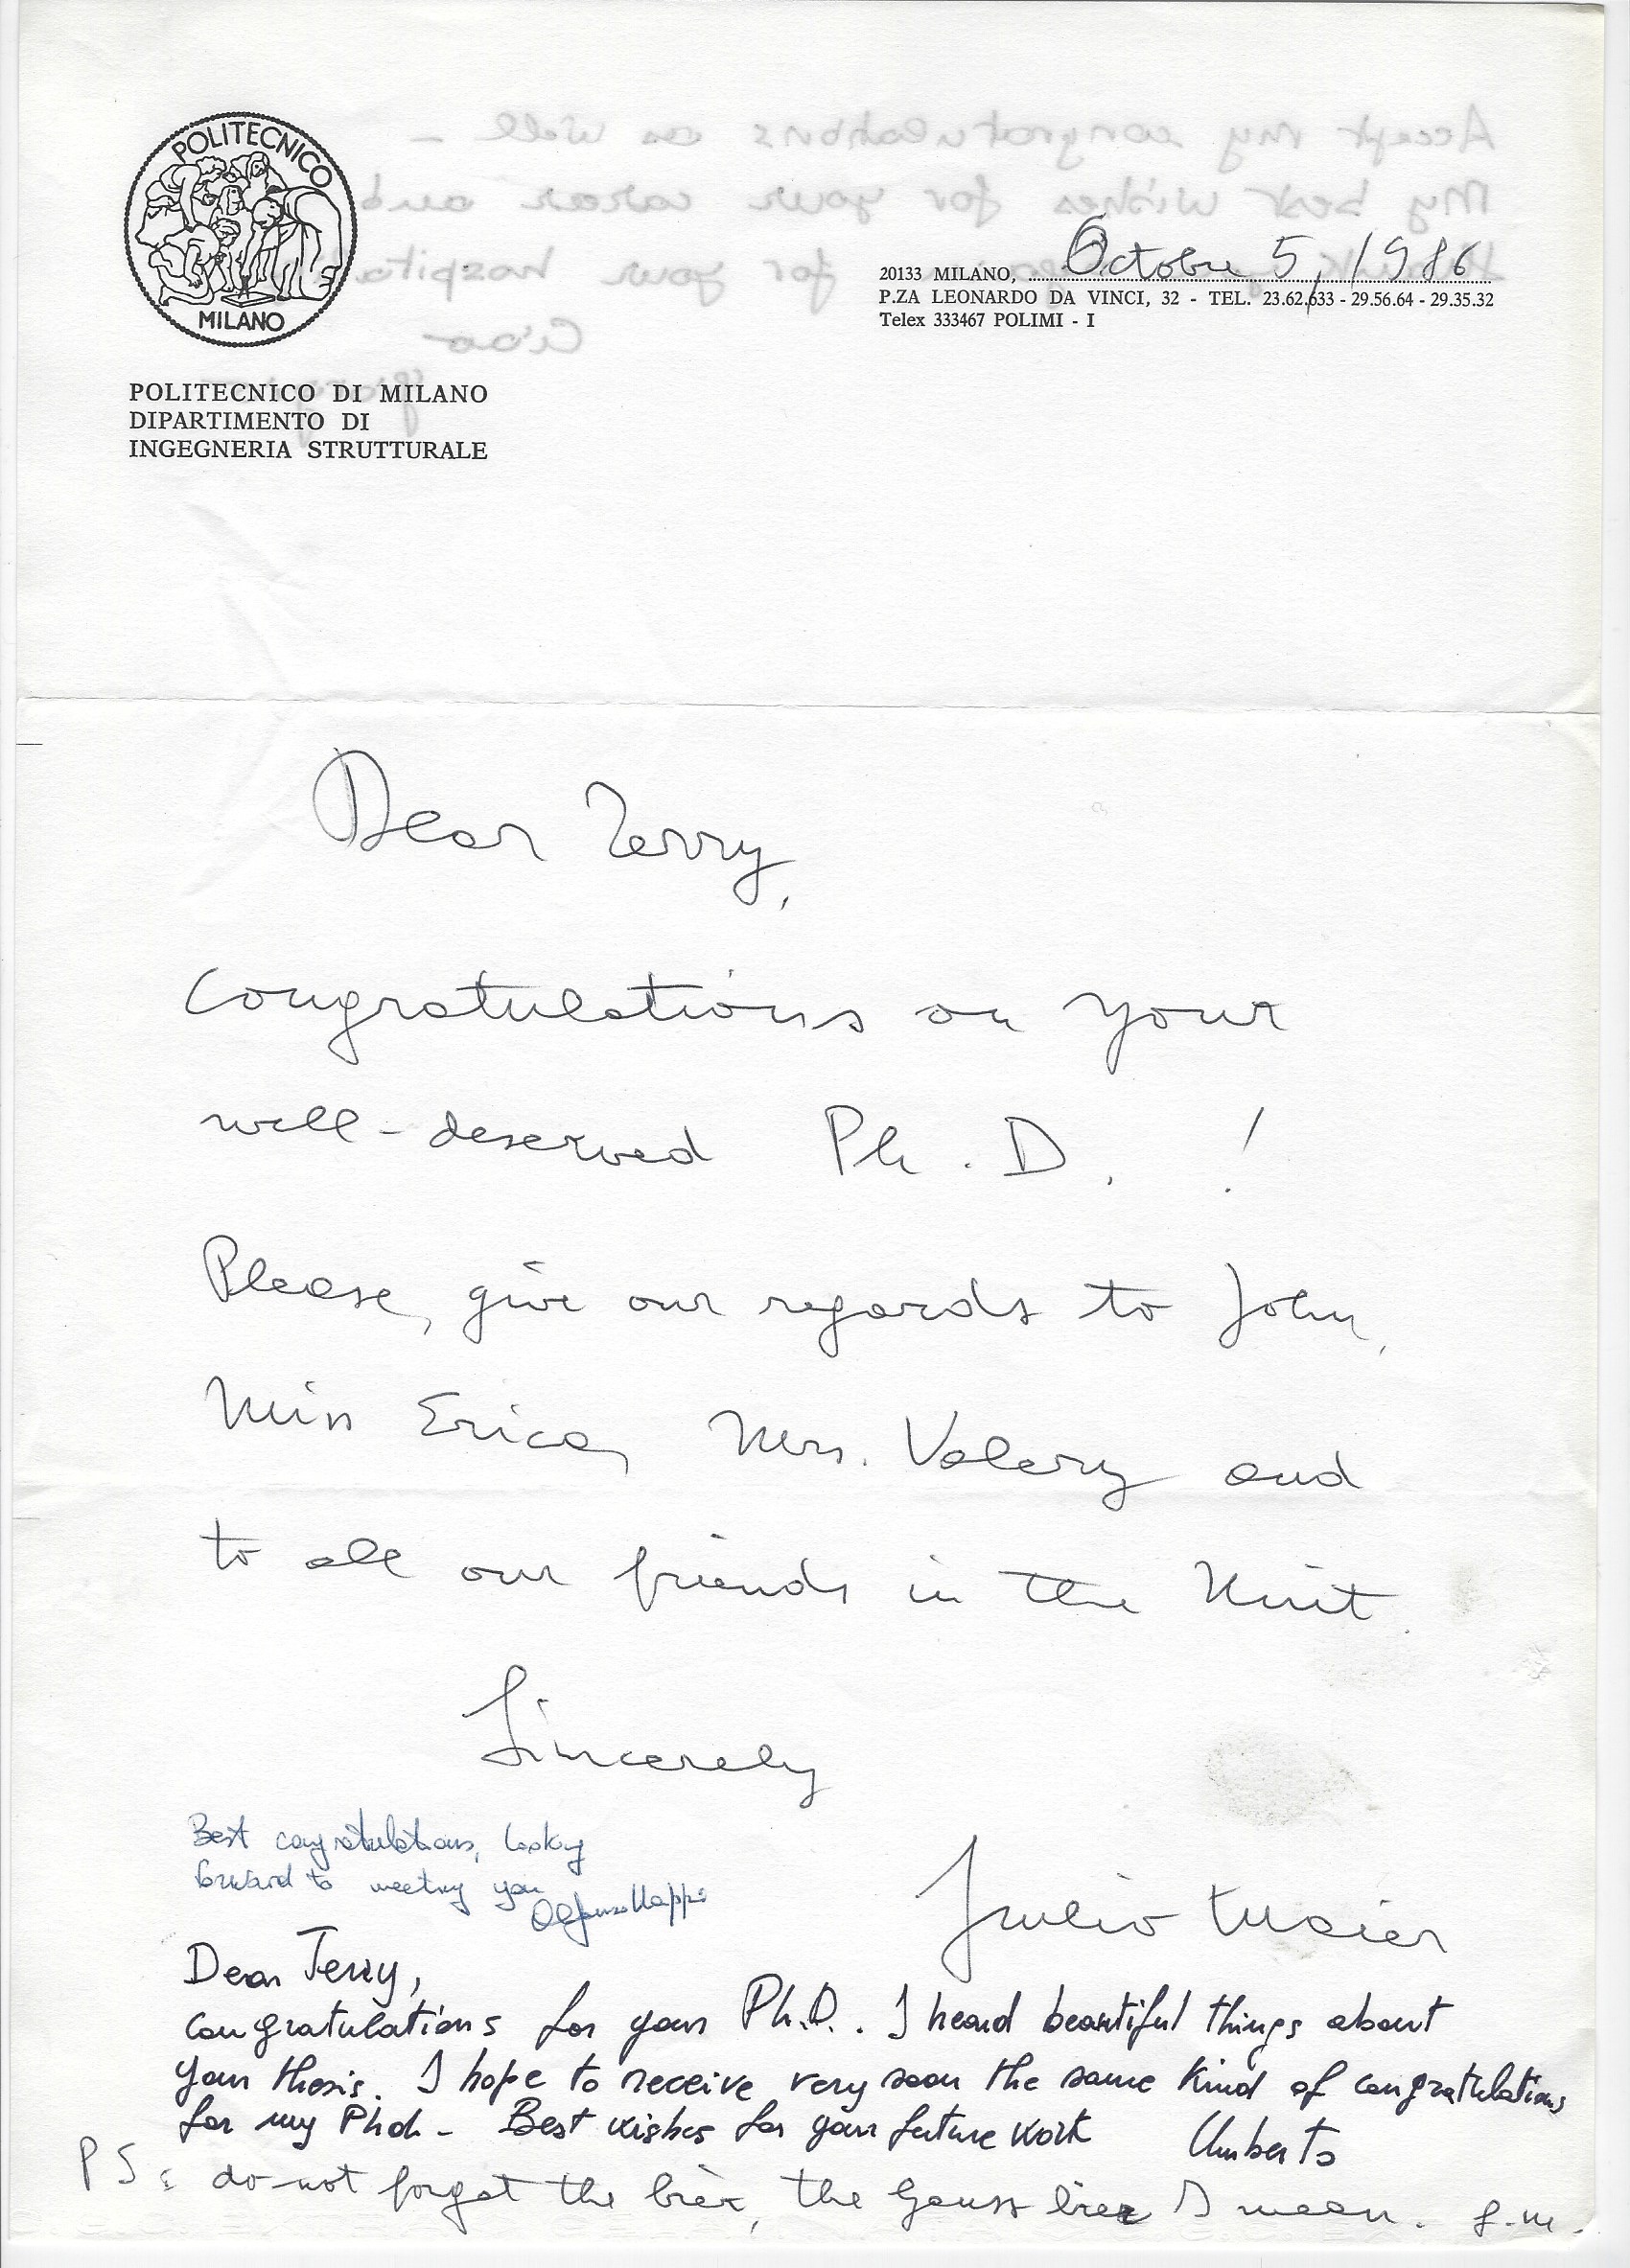 POLITECNICO
MILANO
POLITECNICO DI MILANO
DIPARTIMENTO DI
INGEGNERIA STRUTTURALE
20133 MILANO, October 5, 1986
P.ZA LEONARDO DA VINCI, 32 - TEL. 23.62.633 - 29.56.64 - 29.35.32
Telex 333467 POLIMI - I
Accept my congratulations as well -
My best wishes for your career and
for your hospita
Ciao
Dear Terry,
Congratulations on your
well-deserved Ph.D. !
Please, give our regards to John,
Miss Erica, Mrs. Valery and
to all our friends in the Unit.
Sincerely
Best congratulations, looking
forward to meeting you
Alfonso Nappi
Giulio Maier
Dear Terry,
congratulations for your Ph.D.. I heard beautiful things about
your thesis. I hope to receive very soon the same kind of congratulations
for my Phd - Best wishes for your future work Umberto
PS: do not forget the bier, the Gauss bier I mean. G.M.